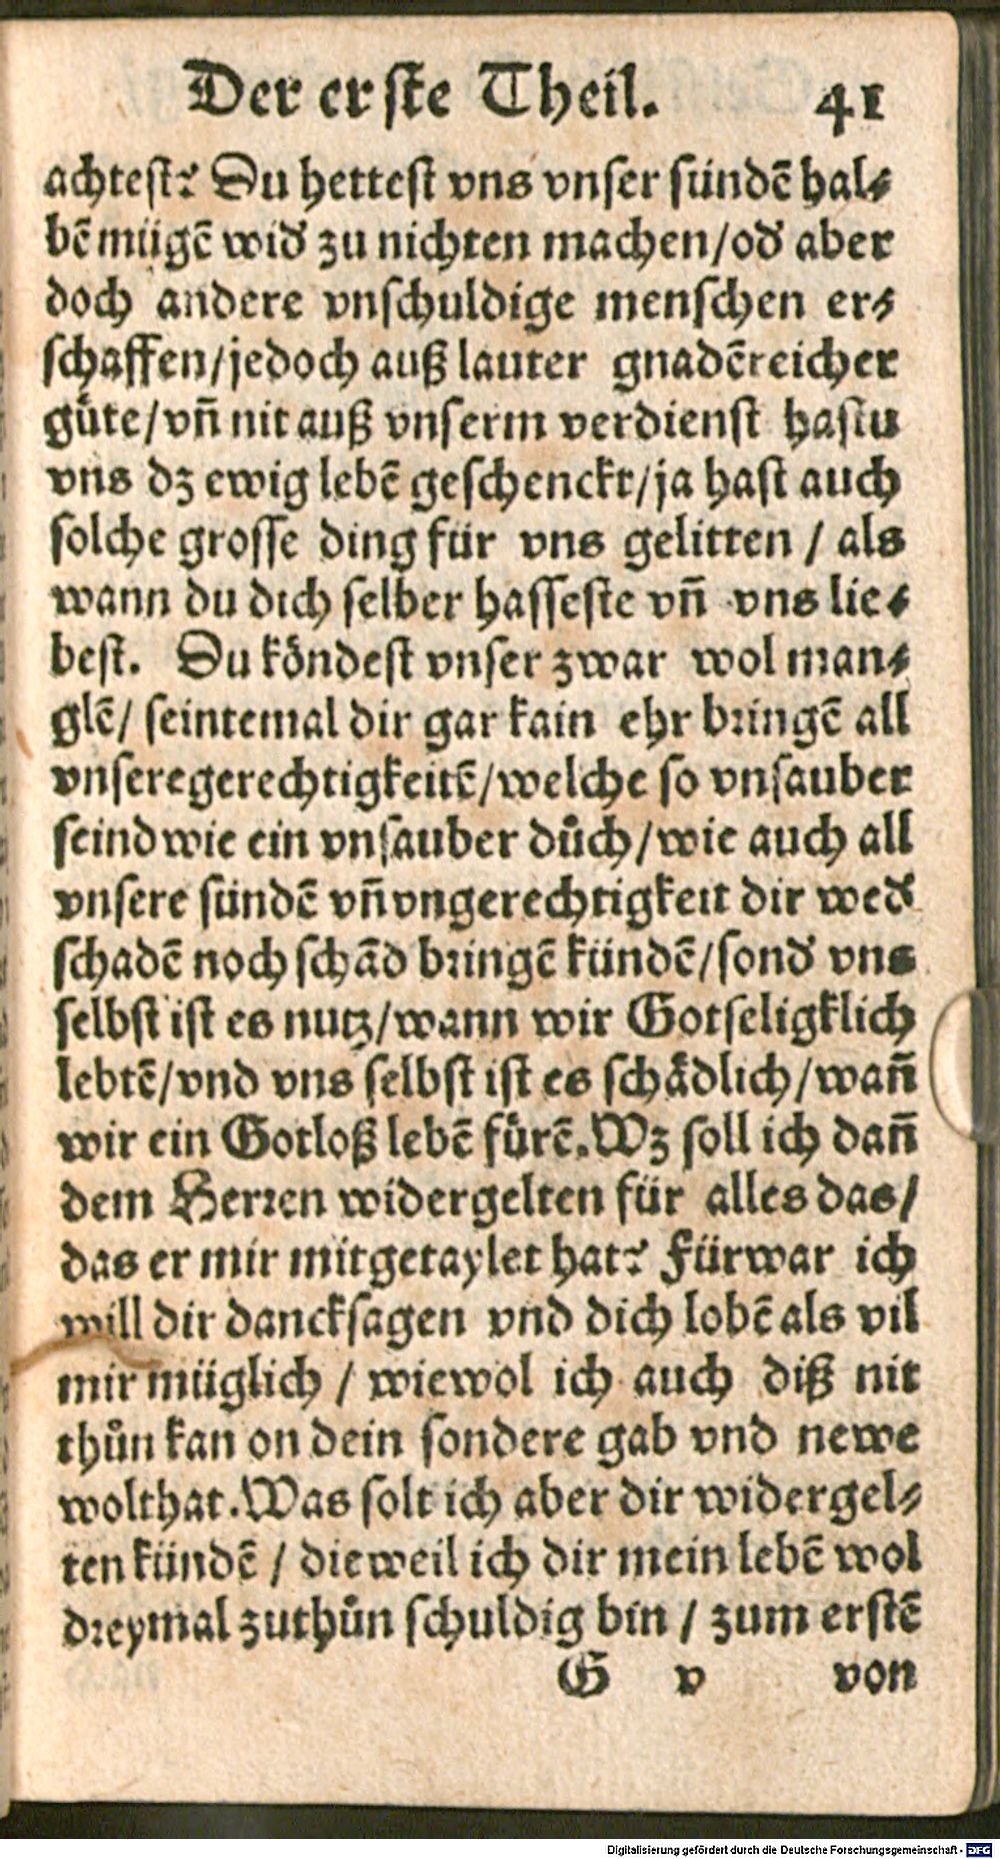 Der erſte Theil. 41
achteſt? Du hetteſt vns vnſer ſündē hal⸗
bē mügē wid' zu nichten machen/od' aber
doch andere vnſchuldige menſchen er⸗
ſchaffen/jedoch auß lauter gnadēreicher
guͤte/vn̄ nit auß vnſerm verdienſt haſtu
vns dz ewig lebē geſchenckt/ja haſt auch
ſolche groſſe ding für vns gelitten / als
wann du dich ſelber haſſeſte vn̄ vns lie⸗
beſt. Du koͤndeſt vnſer zwar wol man⸗
glē/ ſeintemal dir gar kain ehr bringē all
vnſere gerechtigkeitē/welche ſo vnſauber
ſeind wie ein vnſauber duͦch/wie auch all
vnſere ſündē vn̄ vngerechtigkeit dir wed'
ſchadē noch ſchād bringē kündē/ſond' vns
ſelbſt iſt es nutz/wann wir Gotſeligklich
lebtē/vnd vns ſelbſt iſt es ſchaͤdlich/wan̄
wir ein Gotloß lebē fuͤrē. Wz ſoll ich dan̄
dem Herren widergelten für alles das/
das er mir mitgetaylet hat? Fürwar ich
will dir danckſagen vnd dich lobē als vil
mir müglich / wiewol ich auch diß nit
thuͦn kan on dein ſondere gab vnd newe
wolthat. Was ſolt ich aber dir widergel⸗
ten kündē / dieweil ich dir mein lebē wol
dreymal zuthuͦn ſchuldig bin / zum erſtē
G v von
Digitalisierung gefördert durch die Deutsche Forschungsgemeinschaft - DFG